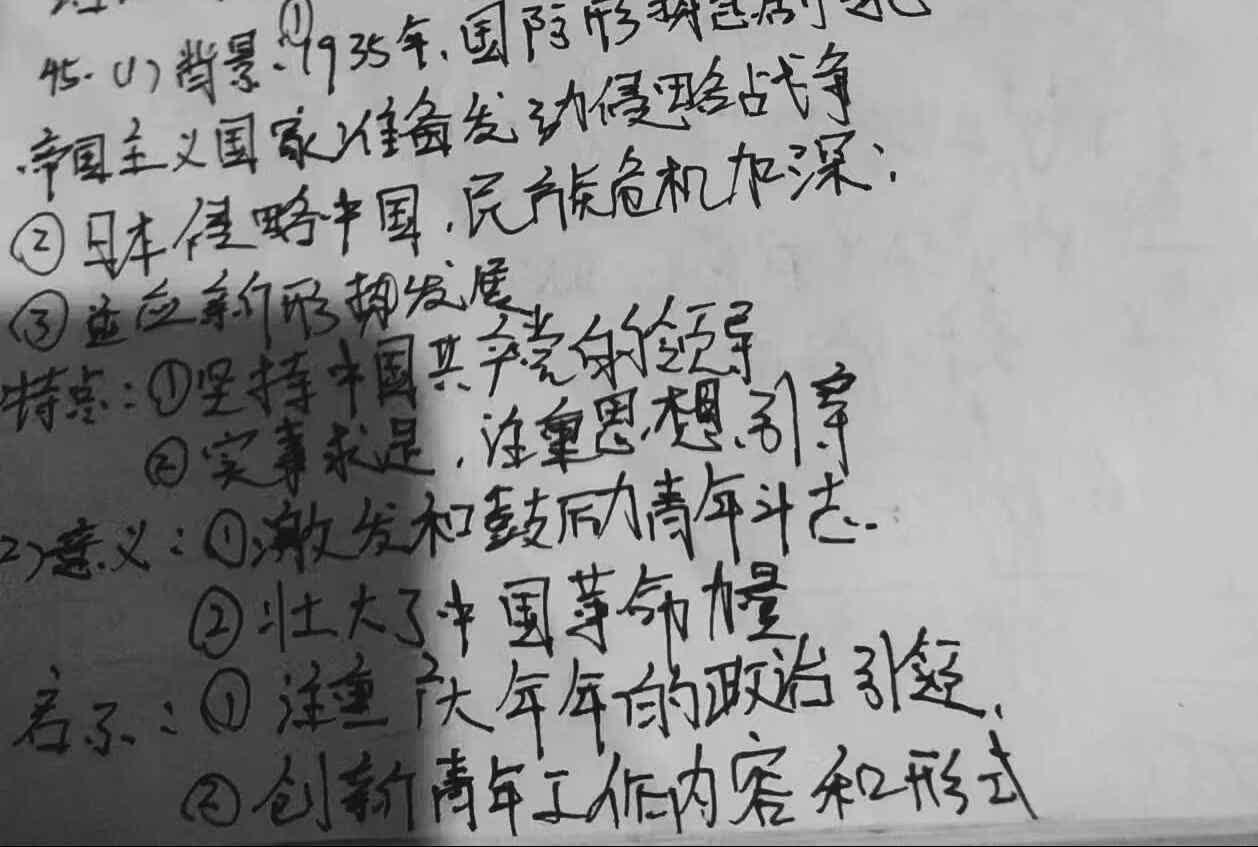 45.(1)背景:①1935年,国际形势急剧
帝国主义国家准备发动侵略战争
②日本侵略中国,民族危机加深;
③适应新形势发展
特点:①坚持中国共产党的领导
②实事求是,注重思想引导
2)意义:①激发和鼓励青年斗志.
②壮大了中国革命力量
启示:①注重广大年年的政治引领,
②创新青年工作内容和形式